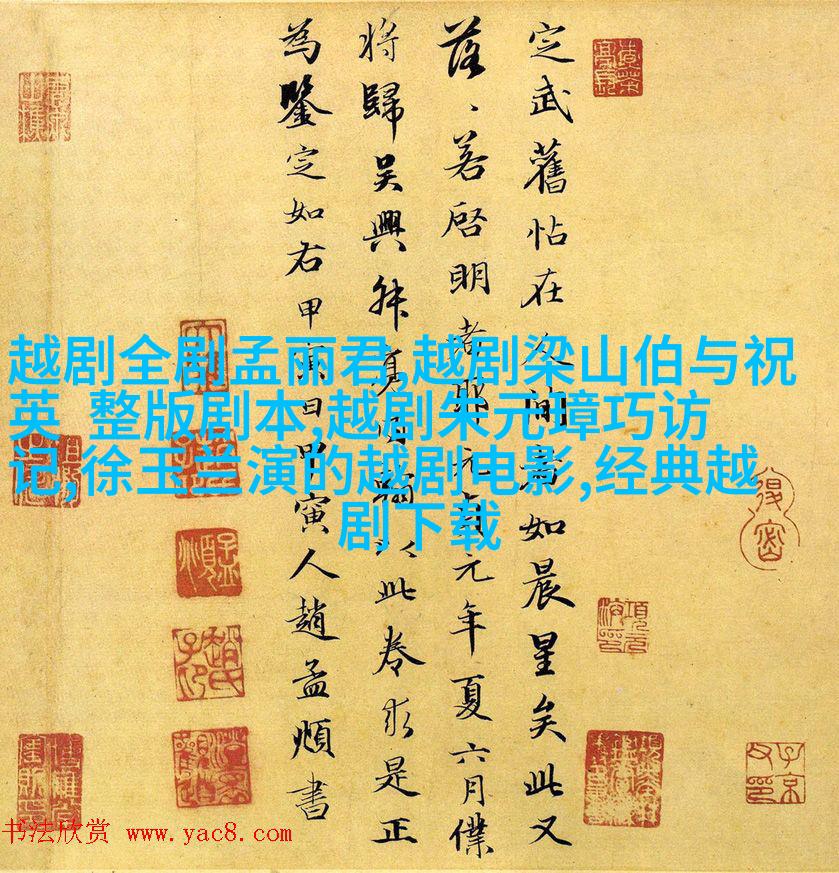 定武舊帖在人間者如晨星矣此又
落、若启明者耶元貞元年夏六月僕
将歸吴興 以此卷求是正
為鑒定如右甲寅日甲寅人趙孟頫書
越剧全剧孟丽君,越剧梁山伯与祝
英 整版剧本,越剧朱元璋巧访
记,徐玉兰演的越剧电影,经典越
剧下载
书法欣赏 www.yac8.com